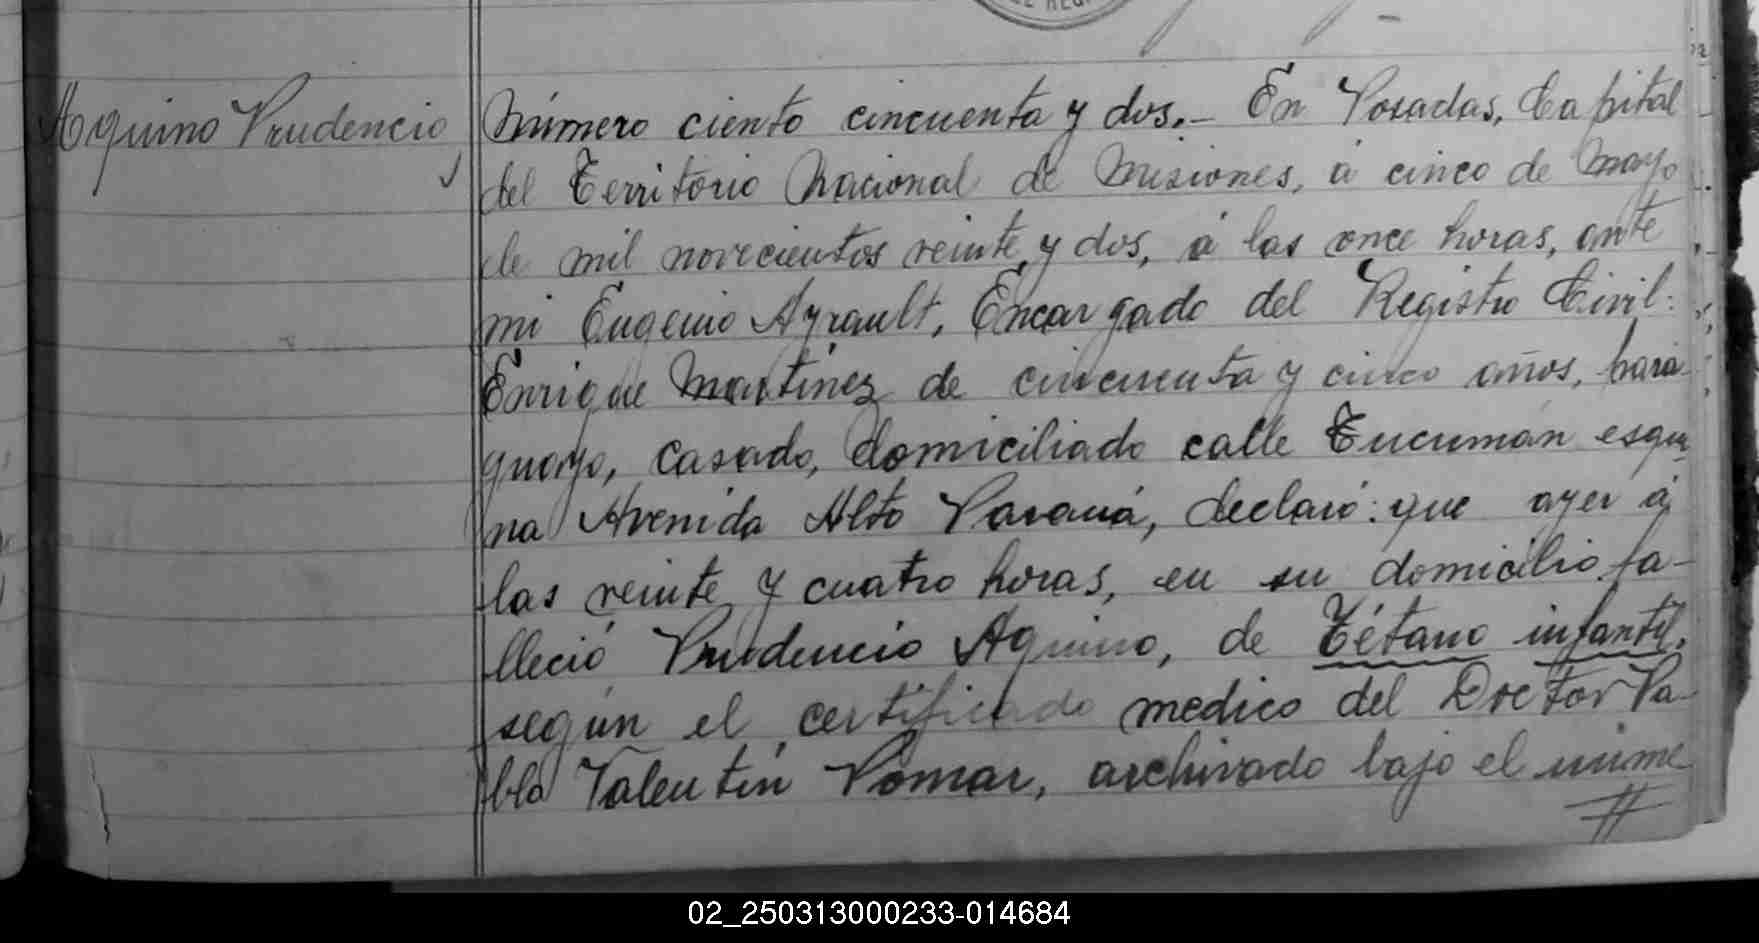 EL REG
Aquino Prudencio
Número ciento cincuenta y dos.- En Posadas, Capital
del Territorio Nacional de Misiones, á cinco de Mayo
de mil novecientos veinte y dos, á las once horas, ante
mi Eugenio Ayrault, Encargado del Registro Civil:
Enrique Martinez de cincuenta y cinco años, para
guayo, casado, domiciliado calle Tucumán esqui
na Avenida Alto Paraná, declaró: que ayer á
las veinte y cuatro horas, en su domicilio fa-
lleció Prudencio Aquino, de Tétano infantil,
según el certificado medico del Doctor Pa-
blo Valentín Pomar, archivado bajo el núme
02_250313000233-014684